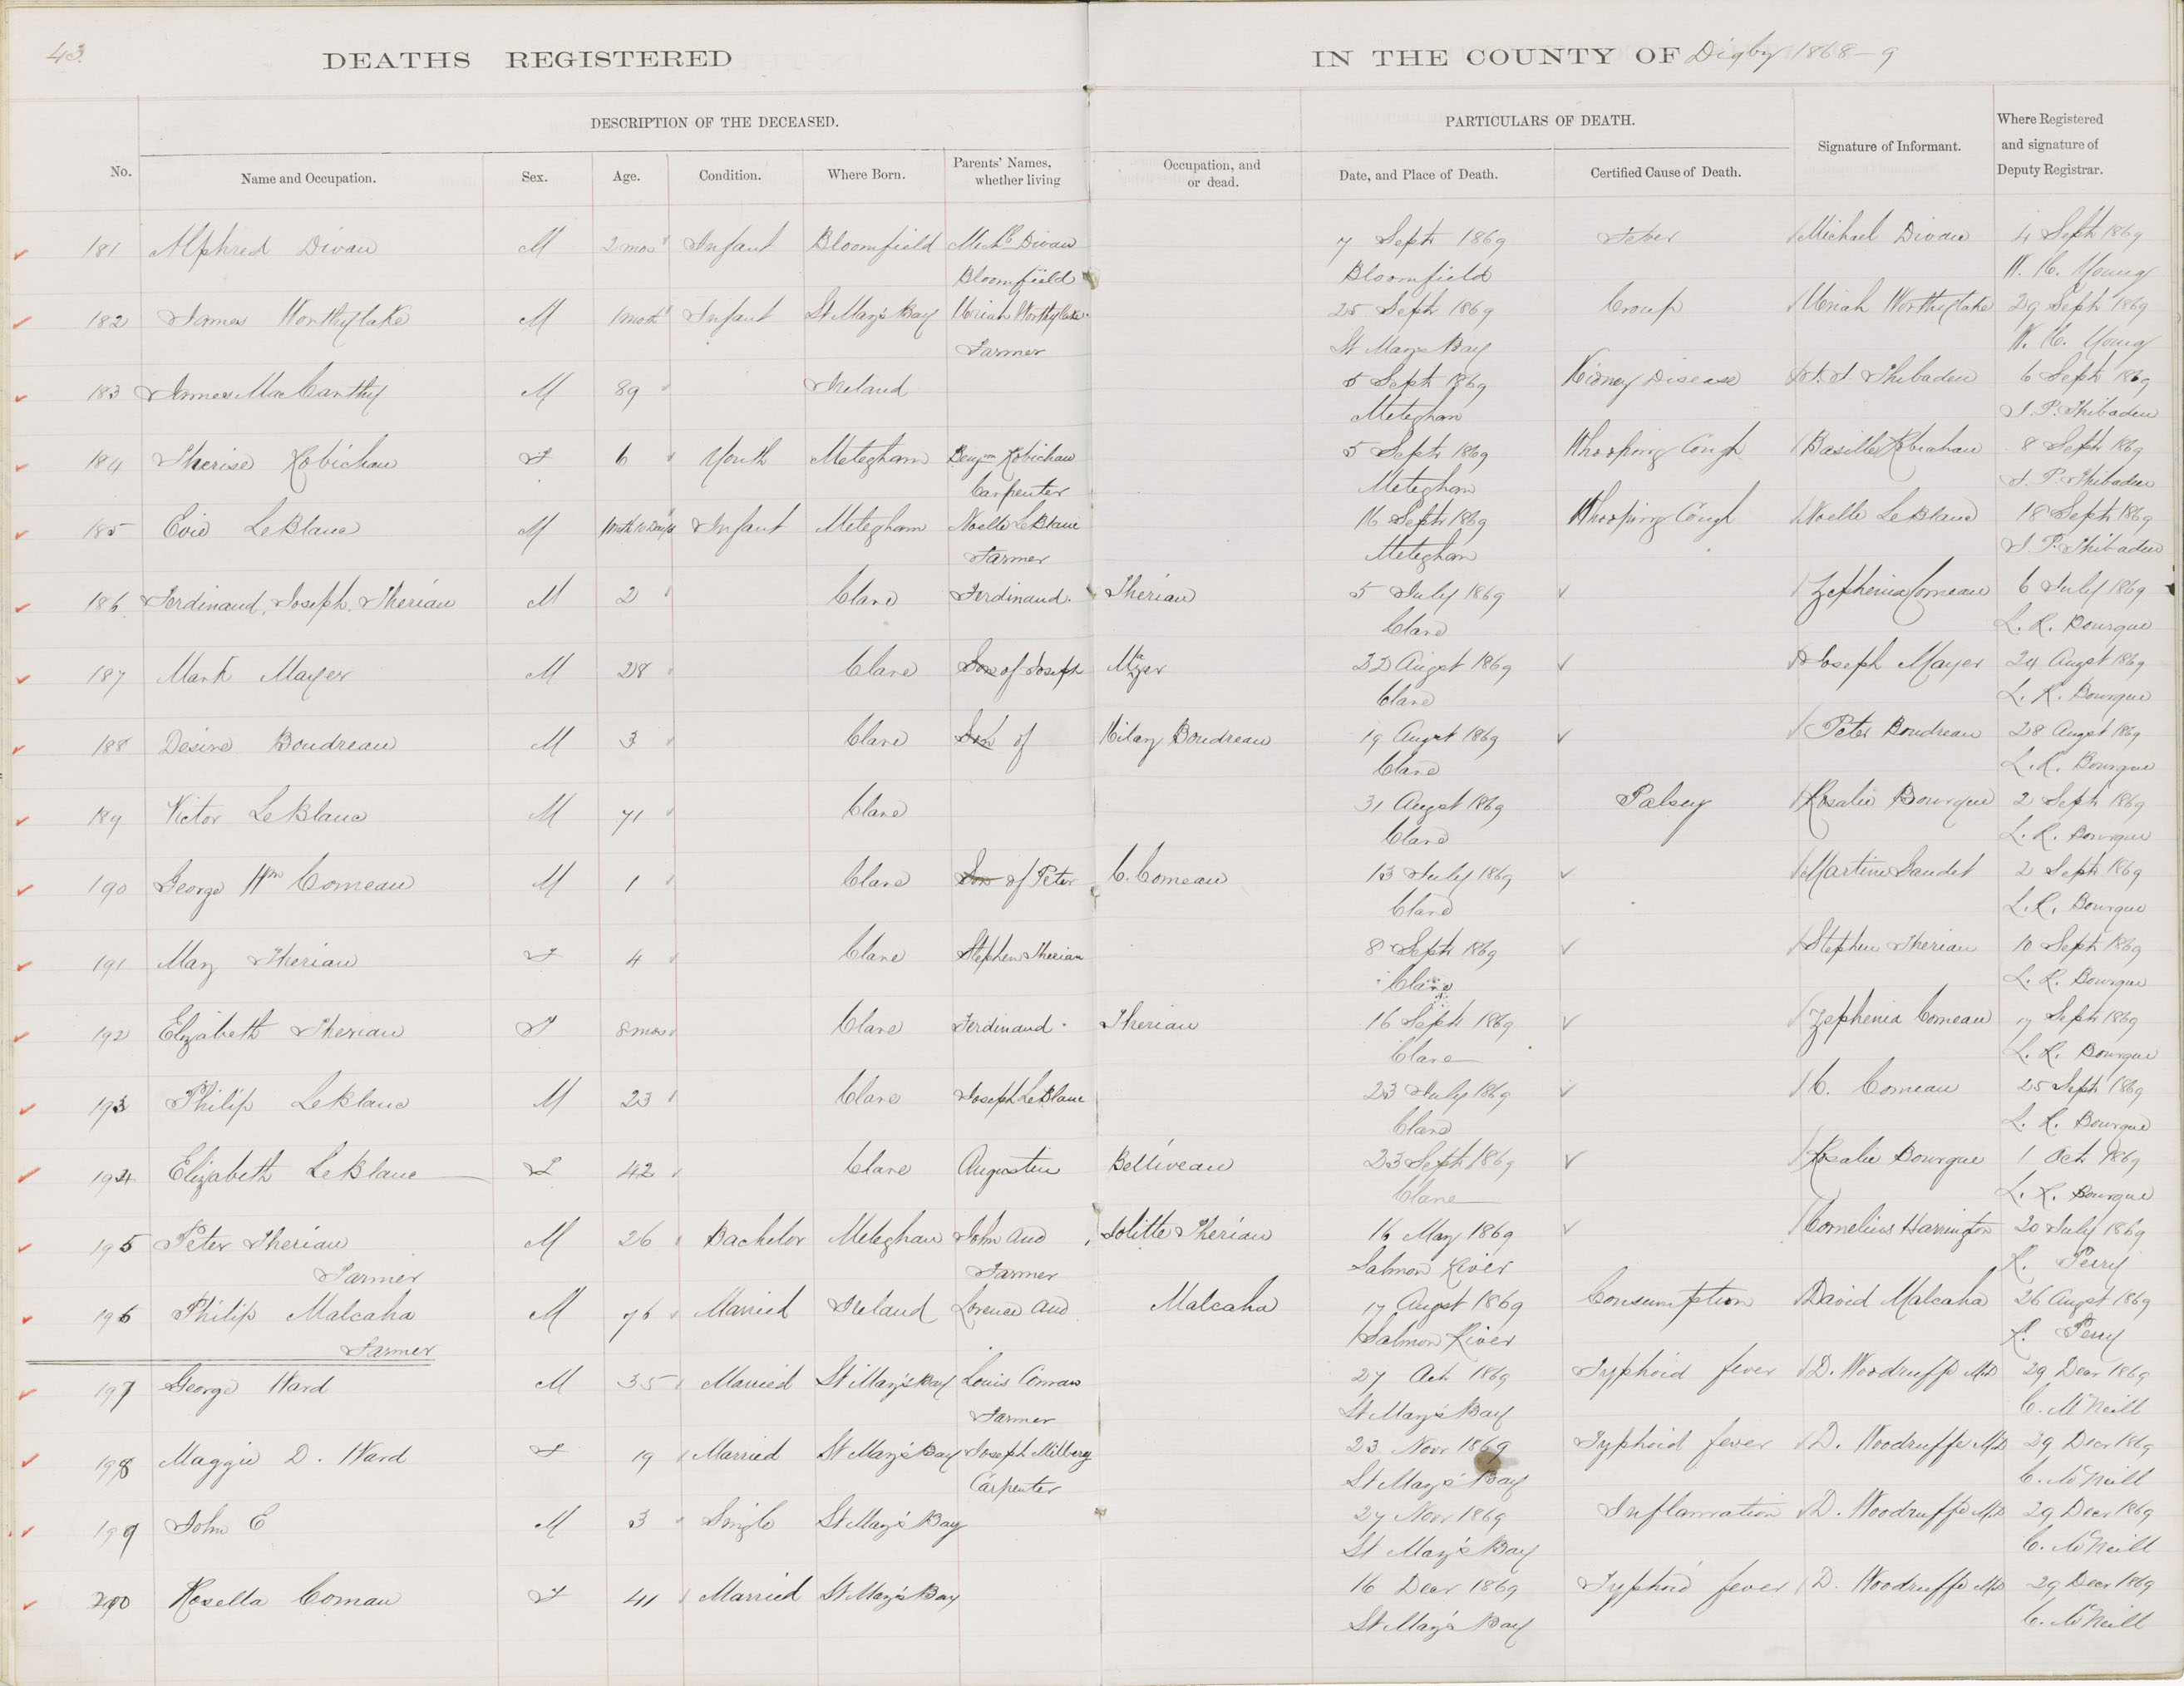 43.
DEATHS REGISTERED IN THE COUNTY OF Digby 1868-9
DESCRIPTION OF THE DECEASED. PARTICULARS OF DEATH.
No. Name and Occupation. Sex. Age. Condition. Where Born. Parents' Names, whether living Occupation, and or dead. Date, and Place of Death. Certified Cause of Death. Signature of Informant. Where Registered and signature of Deputy Registrar.
181 Alphred Divau M 2 mos Infant Bloomfield Michl Divau 7 Sept 1869 Fever Michael Divau 4 Sept 1869
Bloomfield Bloomfield W. H. Young
182 James Worthylake M 1 month Infant St Mary's Bay Uriah Worthylake 25 Sept 1869 Croup Uriah Worthylake 29 Sept 1869
Farmer St Marys Bay W. H. Young
183 James MacCarthy M 89 Ireland 5 Sept 1869 Kidney Disease Thibadeu 6 Sept 1869
Meteghan S. P. Thibadeu
184 Therise Robichau F 6 Youth Meteghan Benjmn Robichau 5 Sept 1869 Whooping Cough Basille Robichau 8 Sept 1869
Carpenter Meteghan S. P. Thibadeu
185 Evie LeBlanc M 1 mth 10 days Infant Meteghan Noelle LeBlanc 16 Sept 1869 Whooping Cough Noelle LeBlanc 18 Sept 1869
Farmer Meteghan S. P. Thibadeu
186 Ferdinand, Joseph, Theriau M 2 Clare Ferdinand Theriau 5 July 1869 Zephenia Comeau 6 July 1869
Clare L. R. Bourque
187 Mark Mayer M 28 Clare Son of Joseph Mayer 22 Augst 1869 Joseph Mayer 24 Augst 1869
Clare L. R. Bourque
188 Desire Boudreau M 3 Clare Son of Hilary Boudreau 19 Augst 1869 Peter Boudreau 28 Augst 1869
Clare L. R. Bourque
189 Victor LeBlanc M 71 Clare 31 Augst 1869 Palsey Rosalie Bourque 2 Sept 1869
Clare L. R. Bourque
190 George Wm Comeau M 1 Clare Son of Peter C. Comeau 13 July 1869 Martine Gaudet 2 Sept 1869
Clare L. R. Bourque
191 Mary Theriau F 4 Clare Stephen Theriau 8 Sept 1869 Stephen Theriau 10 Sept 1869
Clare L. R. Bourque
192 Elizabeth Theriau F 8 mos Clare Ferdinand Theriau 16 Sept 1869 Zephenia Comeau 17 Sept 1869
Clare L. R. Bourque
193 Philip LeBlanc M 23 Clare Joseph LeBlanc 23 July 1869 C. Comeau 25 Sept 1869
Clare L. R. Bourque
194 Elizabeth LeBlanc F 42 Clare Augustin Belliveau 23 Sept 1869 Rosalie Bourque 1 Oct 1869
Clare L. R. Bourque
195 Peter Theriau M 26 Bachelor Meteghan John and Solitte Theriau 16 May 1869 Cornelius Harrington 20 July 1869
Farmer Farmer Salmon River R. Perry
196 Philip Malcaha M 76 Married Ireland Lorence and Malcaha 17 Augst 1869 Consumption David Malcaha 26 Augst 1869
Farmer Salmon River R. Perry
197 George Ward M 35 Married St Mary's Bay Louis Comau 27 Oct 1869 Typhoid fever D. Woodruffe MD 29 Decr 1869
Farmer St Mary's Bay C. McNeill
198 Maggie D. Ward F 19 Married St Mary's Bay Joseph Milbery 23 Novr 1869 Typhoid fever D. Woodruffe MD 29 Decr 1869
Carpenter St Mary's Bay C. McNeill
199 John E M 3 Single St Mary's Bay 27 Novr 1869 Inflamation D. Woodruffe MD 29 Decr 1869
St Mary's Bay C. McNeill
200 Rosella Comau F 41 Married St Mary's Bay 16 Decr 1869 Typhoid fever D. Woodruffe MD 29 Decr 1869
St Mary's Bay C. McNeill